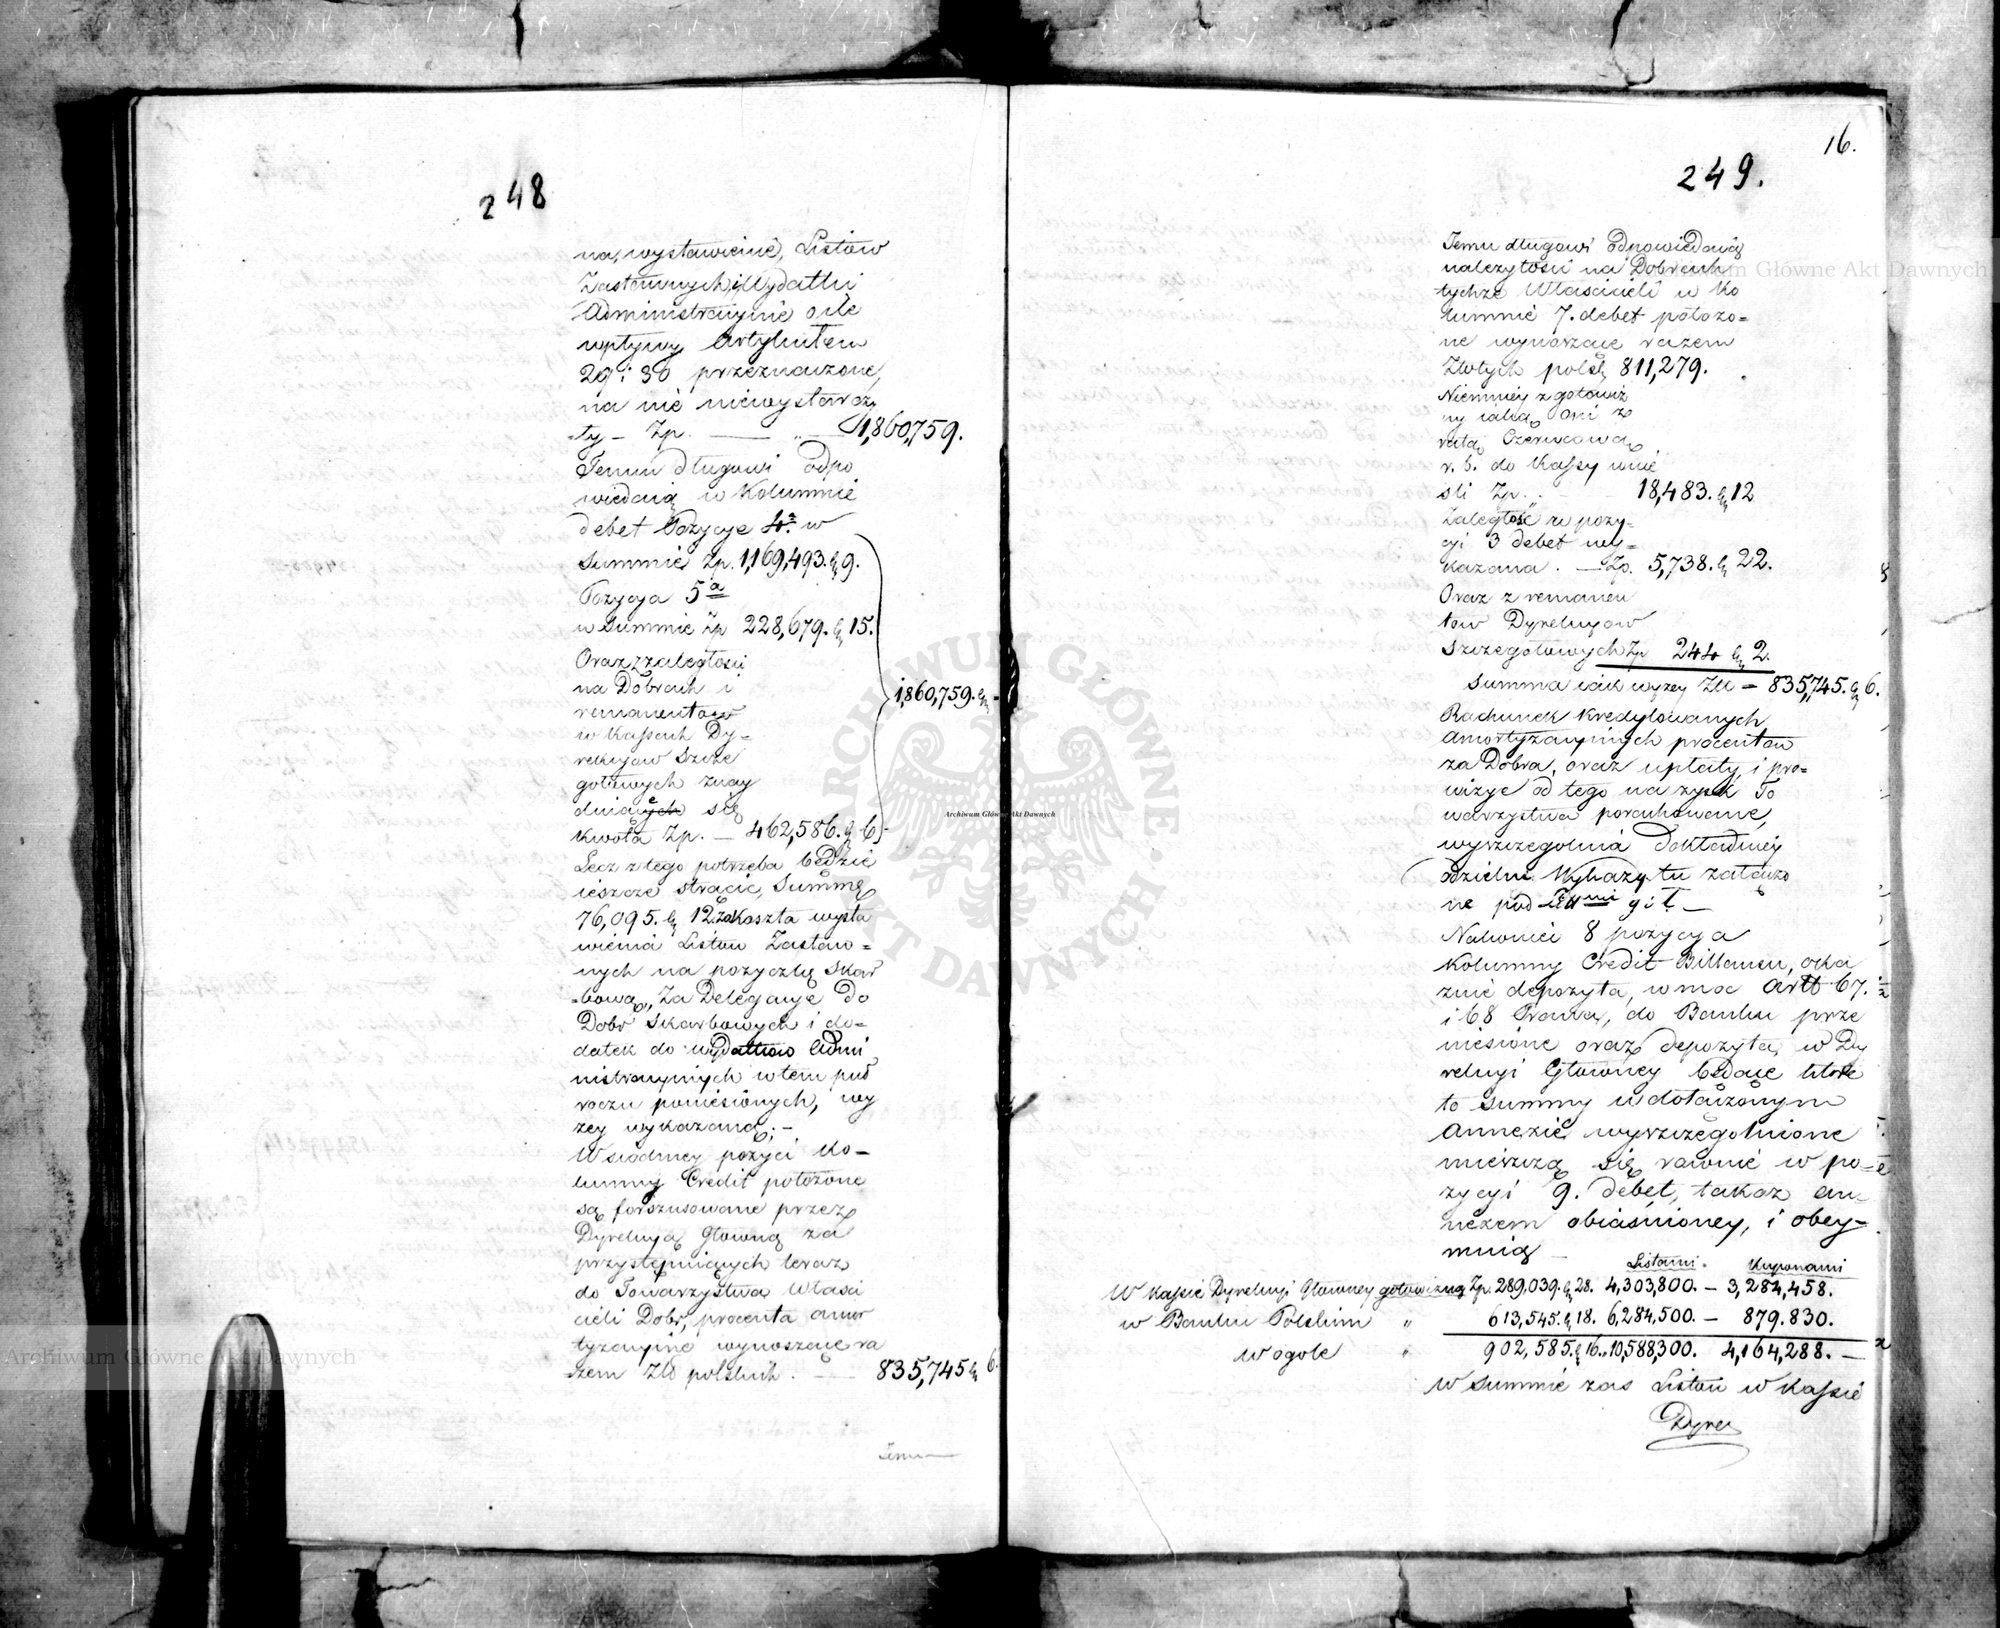 248
na, wystawienie, Listów
Zastawnych, i Wydatki
Administracyine o ile
wpływy Artykułem
29 i 30 przeznaczone,
na nie niewystarczy
-ty — Zp. — „ — 1,860,759.
Temu długowi odpo
wiedaią w Kolumnie
debet Pozycye 4.ª w
Summie Zp. 1,169,493. g 9.
Pozycya 5ª
w Summie Zp 228,679. g 15.
Oraz z zaległości
na Dobrach i
remanentów
w Kassach Dy-
rekcyów Szcze
gółowych znay
dniących się
kwota Zp. — 462,586. g 6
1,860,759. g -
Lecz z tego potrzeba będzie
ieszcze strącić, Summę
76,095. g 12. za koszta wysta
wienia Listów Zastaw-
nych na pożyczkę Skar
-bową, Za Delegacye do
Dobr Skarbowych i do-
datek do wydatków Admi
nistracyinych w tem puł
roczu poniesionych, wy
żey wykazaną; —
W siódmey pozyci Ko-
lumny Credit położone
są forszusowane przez
Dyrekcyą Główną za
przystępuiących teraz
do Towarzystwa Właści
cieli Dobr, procenta amor
tyzacyine wynoszące ra
-zem Złł polskich. — 835,745 g 6.
Temu
16.
249.
Temu długowi odpowiedaią
należytości na Dobrach
tychże Właścicieli w Ko
lumnie 7. debet położo-
ne wynoszące razem
Złotych polsk 811,279.
Niemniey z gotowiz
ny iaką oni z
ratą Czerwcową
r. b. do Kassy wnie
śli Zp. . 18,483. g 12
Zaległość w pozy-
cyi 3 debet wy-
kazana . — Zp. 5,738. g 22.
Oraz z remanen
tow Dyrekcyow
Szczegołowych Zp 244 g 2.
Summa iak wyżey Złł — 835,745. g 6.
Rachunek kredytowanych
amortyzacyinych procentow
za Dobra, oraz upłaty, i pro-
wizye od tego na zysk To
warzystwa porachowane,
wyszczególnia dokładniey
oddzielne Wykazy tu załączo
ne pod
Nakoniec 8 pozycya
Kolumny Credit Billansu, oka
zuie depozyta, w moc Artt 67.
i 68 Prawa, do Banku prze
niesione oraz depozyta, w Dy
rekcyi Głowney będące które
to Summy w dołączonym
Annexie, wyszczególnione
mieszczą się rownie w po-
zycyi 9. debet, takoż an-
nexem obiaśnioney, i obey-
muią —
Listami . Kuponami
W kassie Dyrekcyi Głowney gotowizną Zp. 289,039. g 28. 4,303,800. — 3,284,458.
w Banku Polskim „ 613,545. g 18. 6,284,500. — 879.830.
W ogole „ 902,585. g 16. 10,588,300. 4,164,288. —
W Summie zas Listów w Kassie
Dyrek
Archiwum Główne Akt Dawnych
Archiwum Główne Akt Dawnych
Archiwum Główne Akt Dawnych
ARCHIWUM GŁÓWNE AKT DAWNYCH